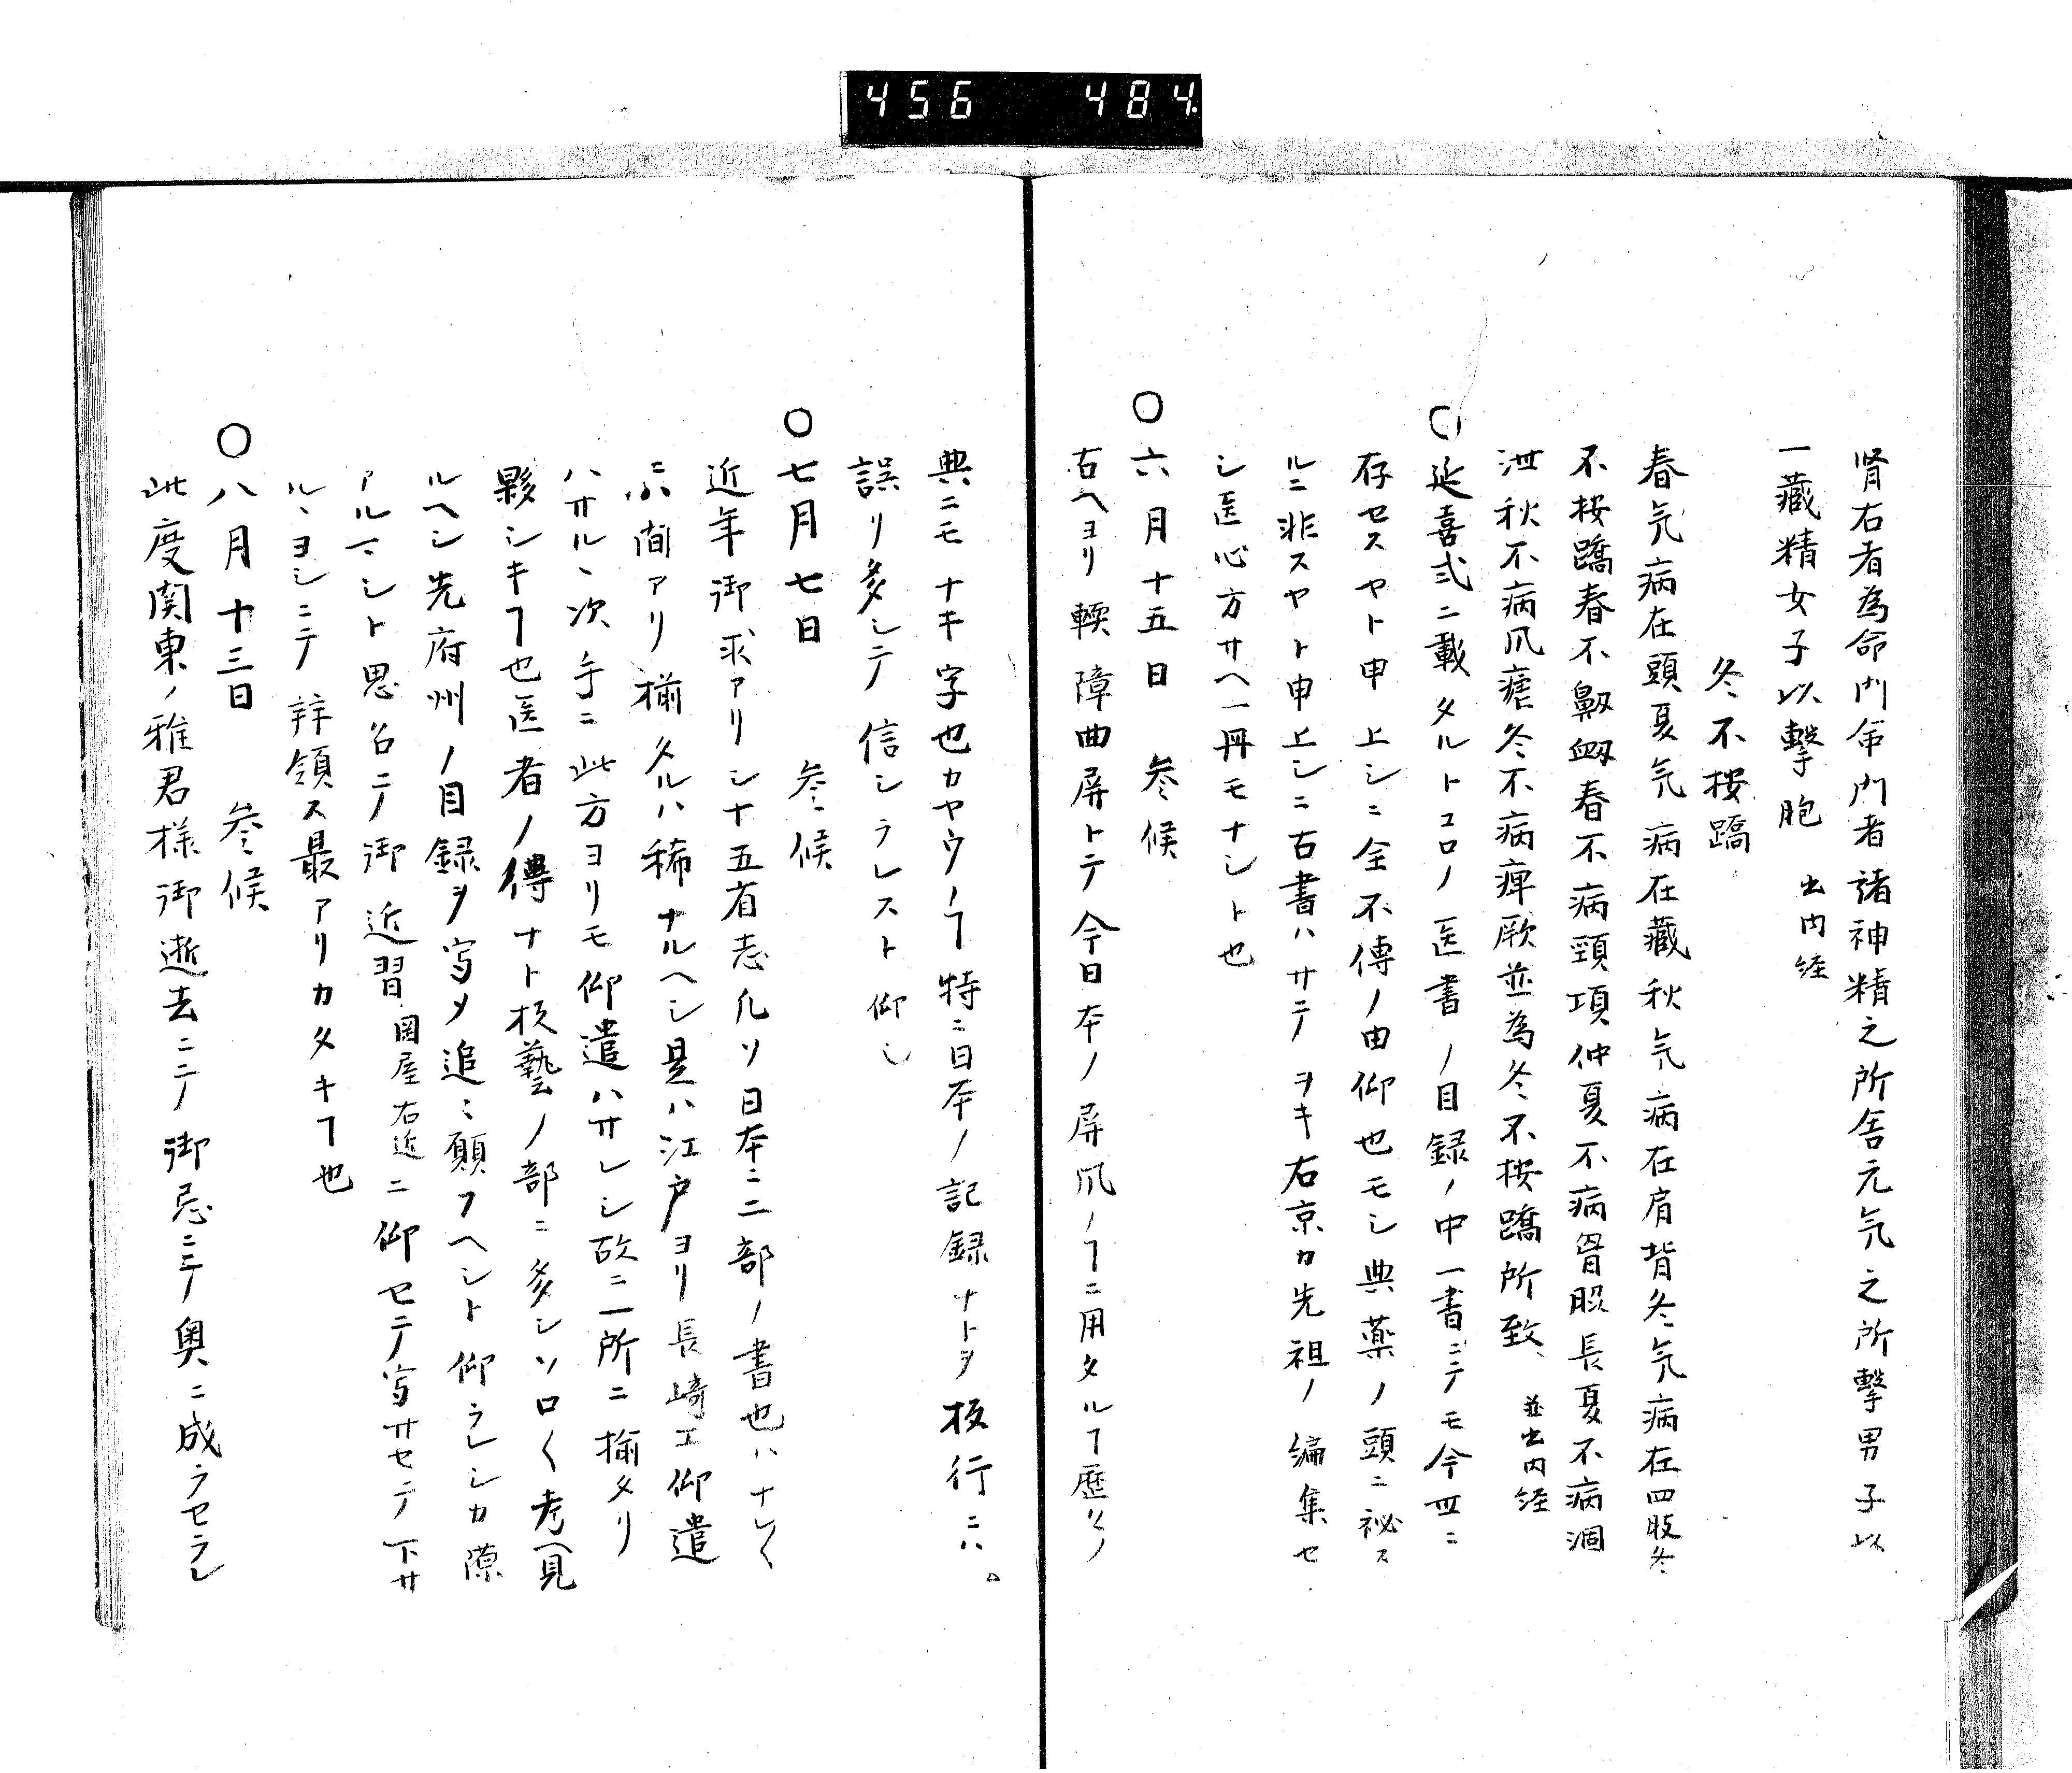 456 484
肾右者為命門命門者諸神精之所舎元気之所撃男子以
一藏精女子以撃胞 出内経
冬不按蹻
春気病在頭夏気病在藏秋気病在肩背冬気病在四肢冬
不按蹻春不鼽衂春不病頸項仲夏不病胷脇長夏不病洞
泄秋不病風瘧冬不病痺厥並為冬不按蹻所致 並出内経
〇延喜式ニ載タルトコロノ医書ノ目録ノ中一書ニテモ今世ニ
存セスヤト申上シニ全不傳ノ由仰也モシ典薬ノ頭ニ祕ス
ルニ非スヤト申上シニ古書ハサテヲキ右京カ先祖ノ編集セ
シ医心方サヘ一冊モナシト也
〇六月十五日 参候
古ヘヨリ輭障曲屏トテ今日本ノ屏風ノヿニ用タルヿ歴々ノ
典ニモナキ字也カヤウノヿ特ニ日本ノ記録ナトヲ板行ニハ
誤リ多シテ信シラレスト仰シ
〇七月七日 参候
近年御求アリシ十五省志凡ソ日本ニ二部ノ書也ハナレ〱
ニハ間アリ揃タルハ稀ナルヘシ是ハ江戸ヨリ長崎エ仰遣
ハサルヽ次手ニ此方ヨリモ仰遣ハサレシ故ニ一所ニ揃タリ
夥シキヿ也医者ノ傳ナト枝藝ノ部ニ多シソロ〱考見
ルヘシ先府州ノ目録ヲ写メ追ミ願フヘシト仰ラレシカ隙
アルマシト思召テ御近習岡屋右近ニ仰セテ写サセテ下サ
ルヽヨシニテ拝領ス最アリカタキヿ也
〇八月十三日 参候
此度関東ノ雅君様御逝去ニテ御忌ニテ奥ニ成ラセラレ